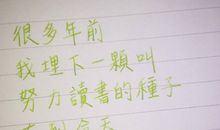 很多年前
我埋下一顆叫
努力讀書的種子